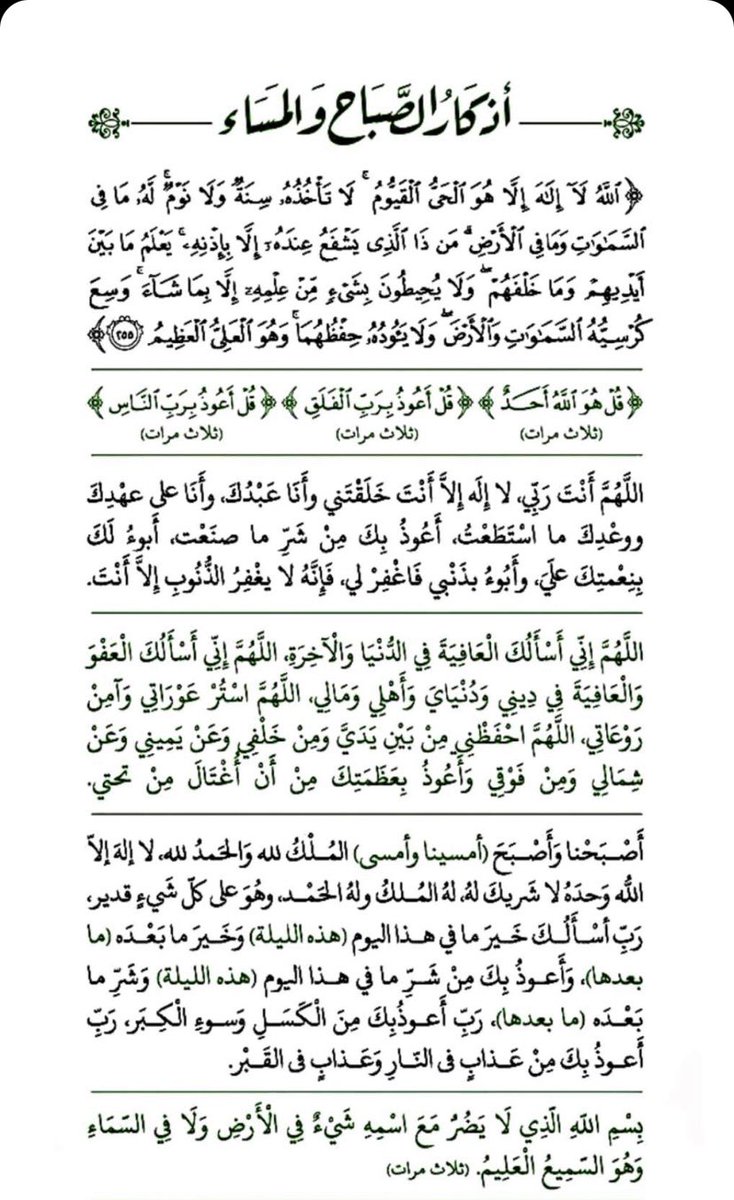 أذكار الصَّبَاح وَالمَسَاء
﴿ ٱللَّهُ لَآ إِلَٰهَ إِلَّا هُوَ ٱلْحَىُّ ٱلْقَيُّومُ ۚ لَا تَأْخُذُهُۥ سِنَةٌ وَلَا نَوْمٌ ۚ لَّهُۥ مَا فِى
ٱلسَّمَٰوَٰتِ وَمَا فِى ٱلْأَرْضِ ۗ مَن ذَا ٱلَّذِى يَشْفَعُ عِندَهُۥٓ إِلَّا بِإِذْنِهِۦ ۚ يَعْلَمُ مَا بَيْنَ
أَيْدِيهِمْ وَمَا خَلْفَهُمْ ۖ وَلَا يُحِيطُونَ بِشَىْءٍ مِّنْ عِلْمِهِۦٓ إِلَّا بِمَا شَآءَ ۚ وَسِعَ
كُرْسِيُّهُ ٱلسَّمَٰوَٰتِ وَٱلْأَرْضَ ۖ وَلَا يَـُٔودُهُۥ حِفْظُهُمَا ۚ وَهُوَ ٱلْعَلِىُّ ٱلْعَظِيمُ ٢٥٥ ﴾
﴿ قُلْ هُوَ ٱللَّهُ أَحَدٌ ﴾ ﴿ قُلْ أَعُوذُ بِرَبِّ ٱلْفَلَقِ ﴾ ﴿ قُلْ أَعُوذُ بِرَبِّ ٱلنَّاسِ ﴾
(ثلاث مرات) (ثلاث مرات) (ثلاث مرات)
اللَّهُمَّ أَنْتَ رَبِّي، لا إِلَه إِلاَّ أَنْتَ خَلَقْتَني وأَنَا عَبْدُكَ، وأَنَا على عهْدِكَ
ووعْدِكَ ما اسْتَطَعْتُ، أَعُوذُ بِكَ مِنْ شَرِّ ما صنَعْت، أَبوءُ لَكَ
بِنِعْمتِكَ علَيَّ، وأَبُوءُ بذَنْبي فَاغْفِرْ لي، فَإِنَّهُ لا يغْفِرُ الذُّنُوبِ إِلاَّ أَنْتَ.
اللَّهُمَّ إِنِّي أَسْأَلُكَ الْعَافِيَةَ فِي الدُّنْيَا وَالْآخِرَةِ، اللَّهُمَّ إِنِّي أَسْأَلُكَ الْعَفْوَ
وَالْعَافِيَةَ فِي دِينِي وَدُنْيَايَ وَأَهْلِي وَمَالِي، اللَّهُمَّ اسْتُرْ عَوْرَاتِي وَآمِنْ
رَوْعَاتِي، اللَّهُمَّ احْفَظْنِي مِنْ بَيْنِ يَدَيَّ وَمِنْ خَلْفِي وَعَنْ يَمِينِي وَعَنْ
شِمَالِي وَمِنْ فَوْقِي وَأَعُوذُ بِعَظَمَتِكَ مِنْ أَنْ أُغْتَالَ مِنْ تحتي.
أَصْبَحْنا وَأَصْبَحَ (أمسينا وأمسى) المُلْكُ لله وَالحَمدُ لله، لا إلهَ إلاّ
اللّه وَحدَهُ لا شَريكَ لهُ، لهُ المُلكُ ولهُ الحَمْد، وهُوَ على كلّ شَيءٍ قدير،
رَبِّ أسْأَلُكَ خَيرَ ما في هذا اليوم (هذه الليلة) وَخَيرَ ما بَعْدَه (ما
بعدها)، وَأَعوذُ بِكَ مِنْ شَرِّ ما في هذا اليوم (هذه الليلة) وَشَرِّ ما
بَعْدَه (ما بعدها)، رَبِّ أَعوذُبِكَ مِنَ الْكَسَلِ وَسوءِ الْكِبَر، رَبِّ
أَعوذُ بِكَ مِنْ عَذابٍ في النّارِ وَعَذابٍ في القَبْر.
بِسْمِ اللهِ الَّذِي لَا يَضُرُّ مَعَ اسْمِهِ شَيْءٌ فِي الْأَرْضِ وَلَا فِي السَّمَاءِ
وَهُوَ السَّمِيعُ الْعَلِيمُ. (ثلاث مرات)